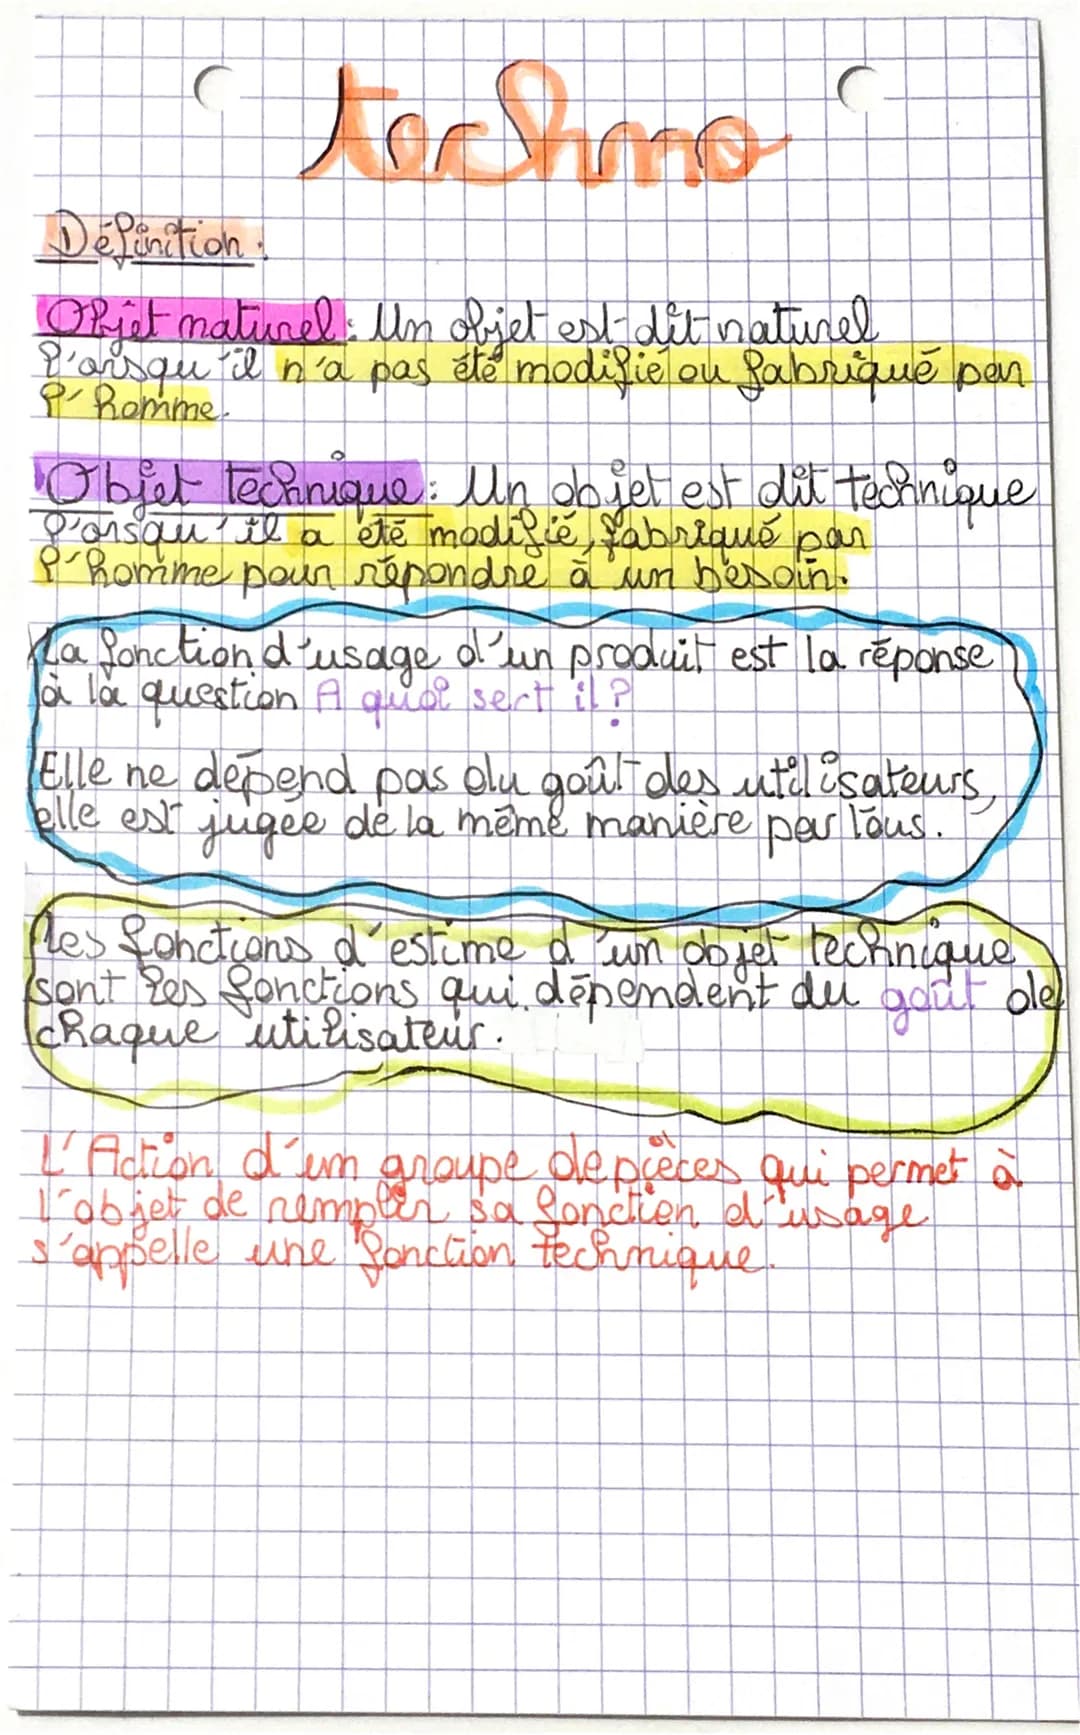 techno
Définition :
Objet naturel : Un objet est dit naturel
l'orsqu'il n'a pas été modifié ou fabriqué par
l'homme.
Objet technique : Un objet est dit technique
l'orsqu'il a été modifié, fabriqué par
l'homme pour répondre à un besoin.
La fonction d'usage d'un produit est la réponse
à la question A quoi sert il ?
Elle ne dépend pas du goût des utilisateurs,
elle est jugée de la même manière par tous.
Les fonctions d'estime d'un objet technique
sont les fonctions qui dépendent du goût de
chaque utilisateur.
L'Action d'um groupe de pièces qui permet à
l'objet de remplir sa fonction d'usage
s'appelle une fonction technique.